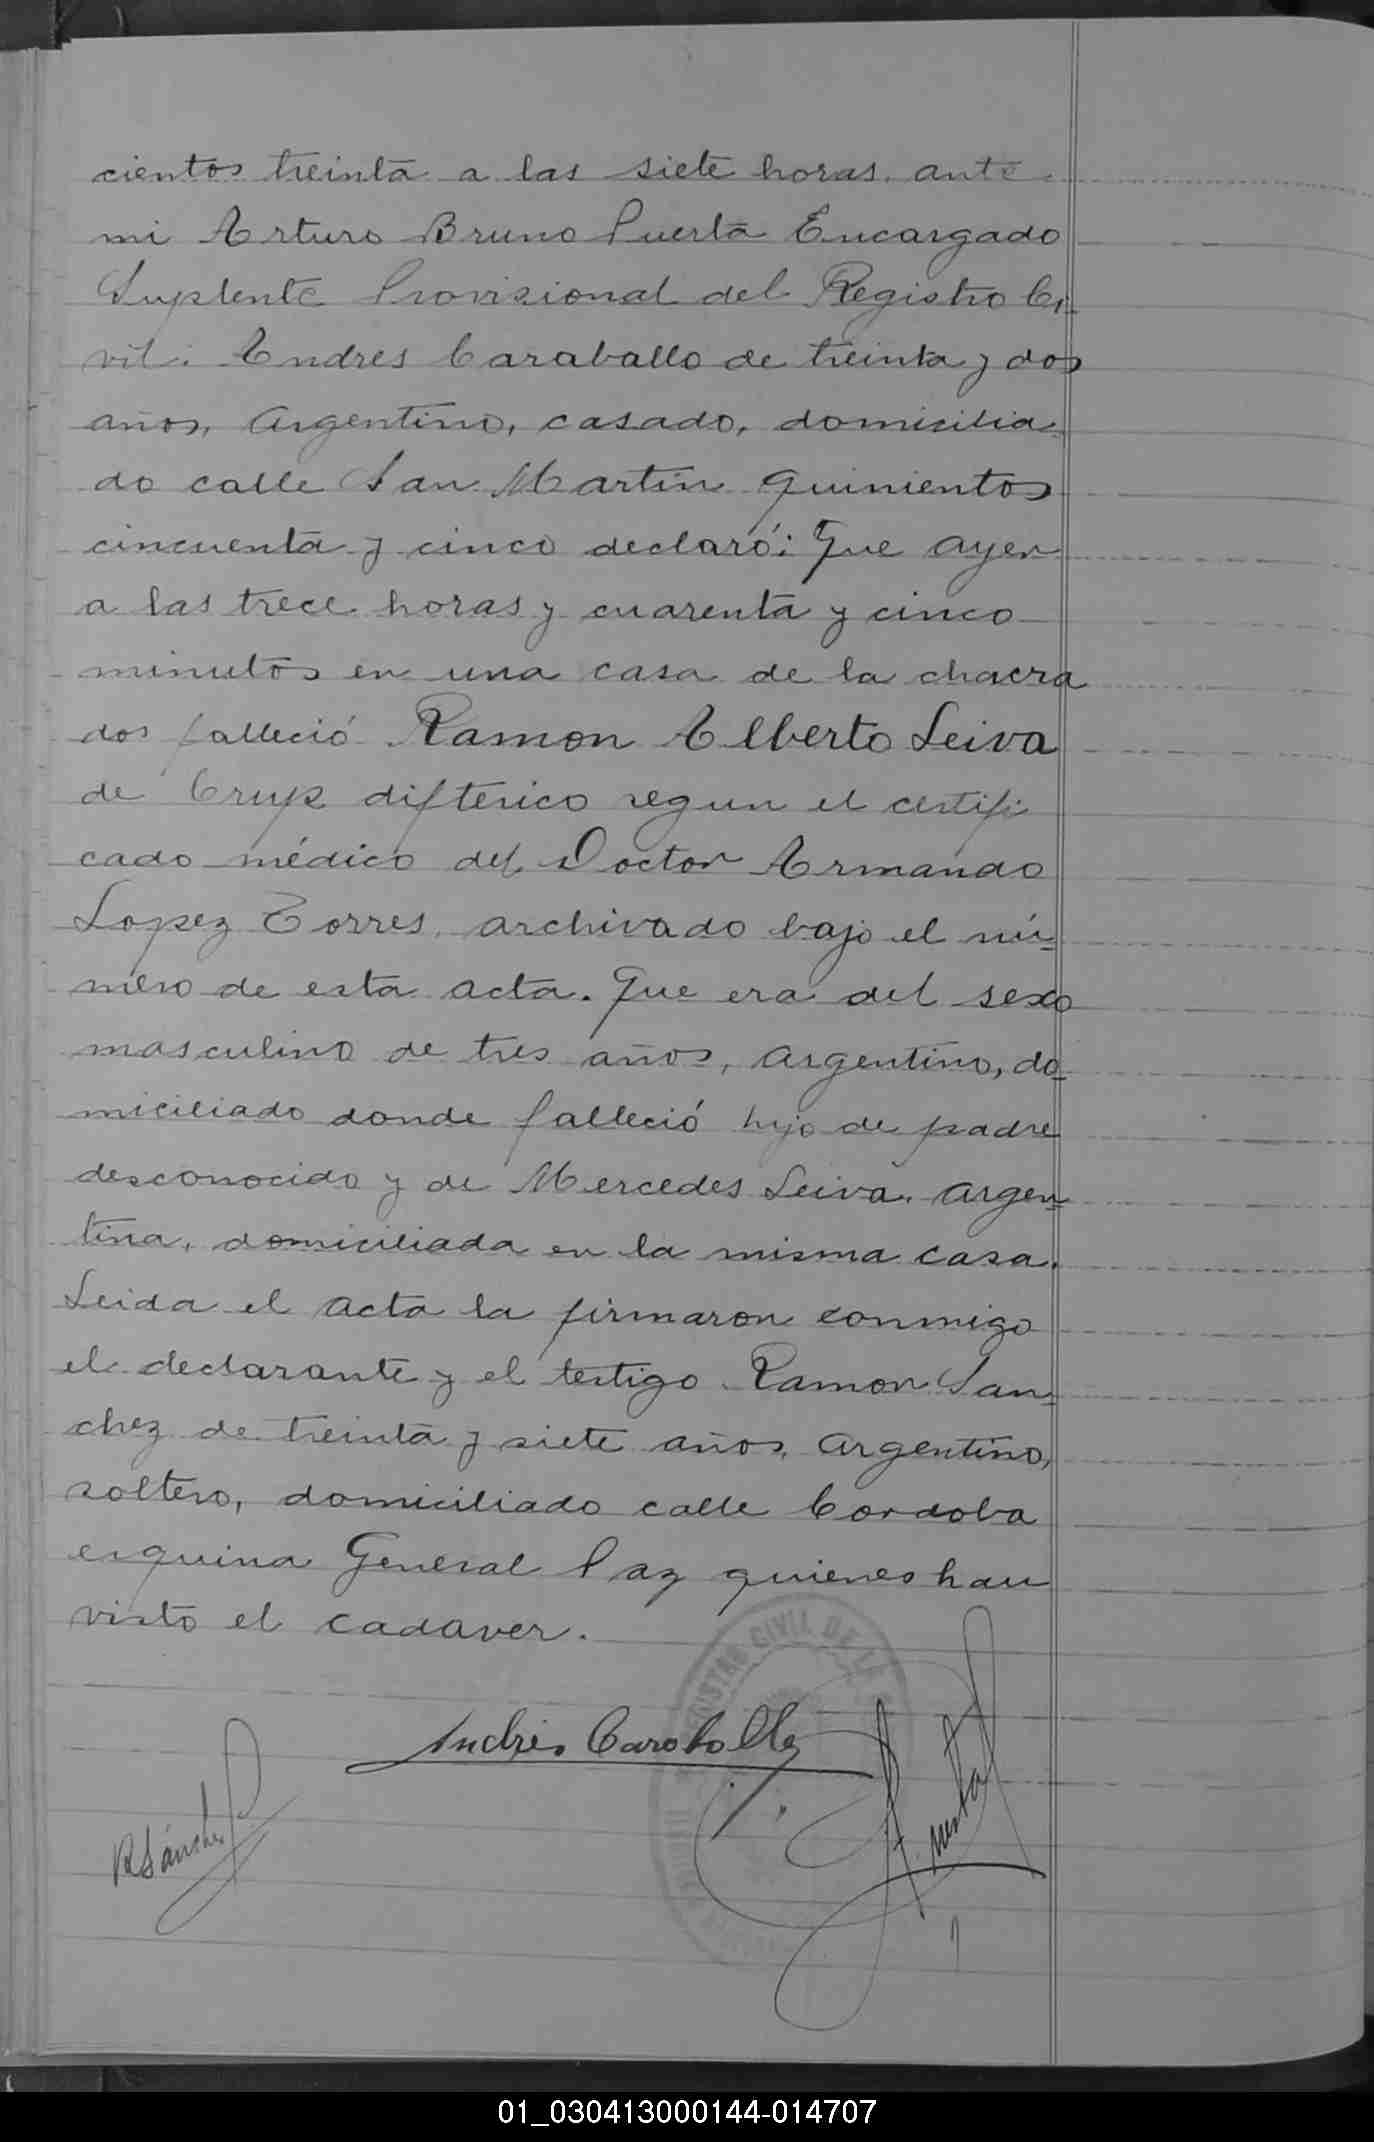 cientos treinta a las siete horas, ante
mi Arturo Bruno Puerta Encargado
Suplente Provisional del Registro Ci-
vil: Andres Caraballo de treinta y dos
años, argentino, casado, domicilia-
do calle San Martin quinientos
cincuenta y cinco declaró: Que ayer
a las trece horas y cuarenta y cinco
minutos en una casa de la chacra
dos falleció Ramon Alberto Leiva
de Crup difterico segun el certifi
cado médico del Doctor Armando
Lopez Torres, archivado bajo el nú-
mero de esta acta. Que era del sexo
masculino de tres años, argentino, do-
miciliado donde falleció hijo de padre
desconocido y de Mercedes Leiva, argen-
tina, domiciliada en la misma casa.
Leida el acta la firmaron conmigo
el declarante y el testigo Ramon San-
chez de treinta y siete años, argentino,
soltero, domiciliado calle Cordoba
esquina General Paz quienes han
visto el cadaver.
CIVIL DE LA
Andrés Caraballo
RSánchez
Puerta
01_030413000144-014707